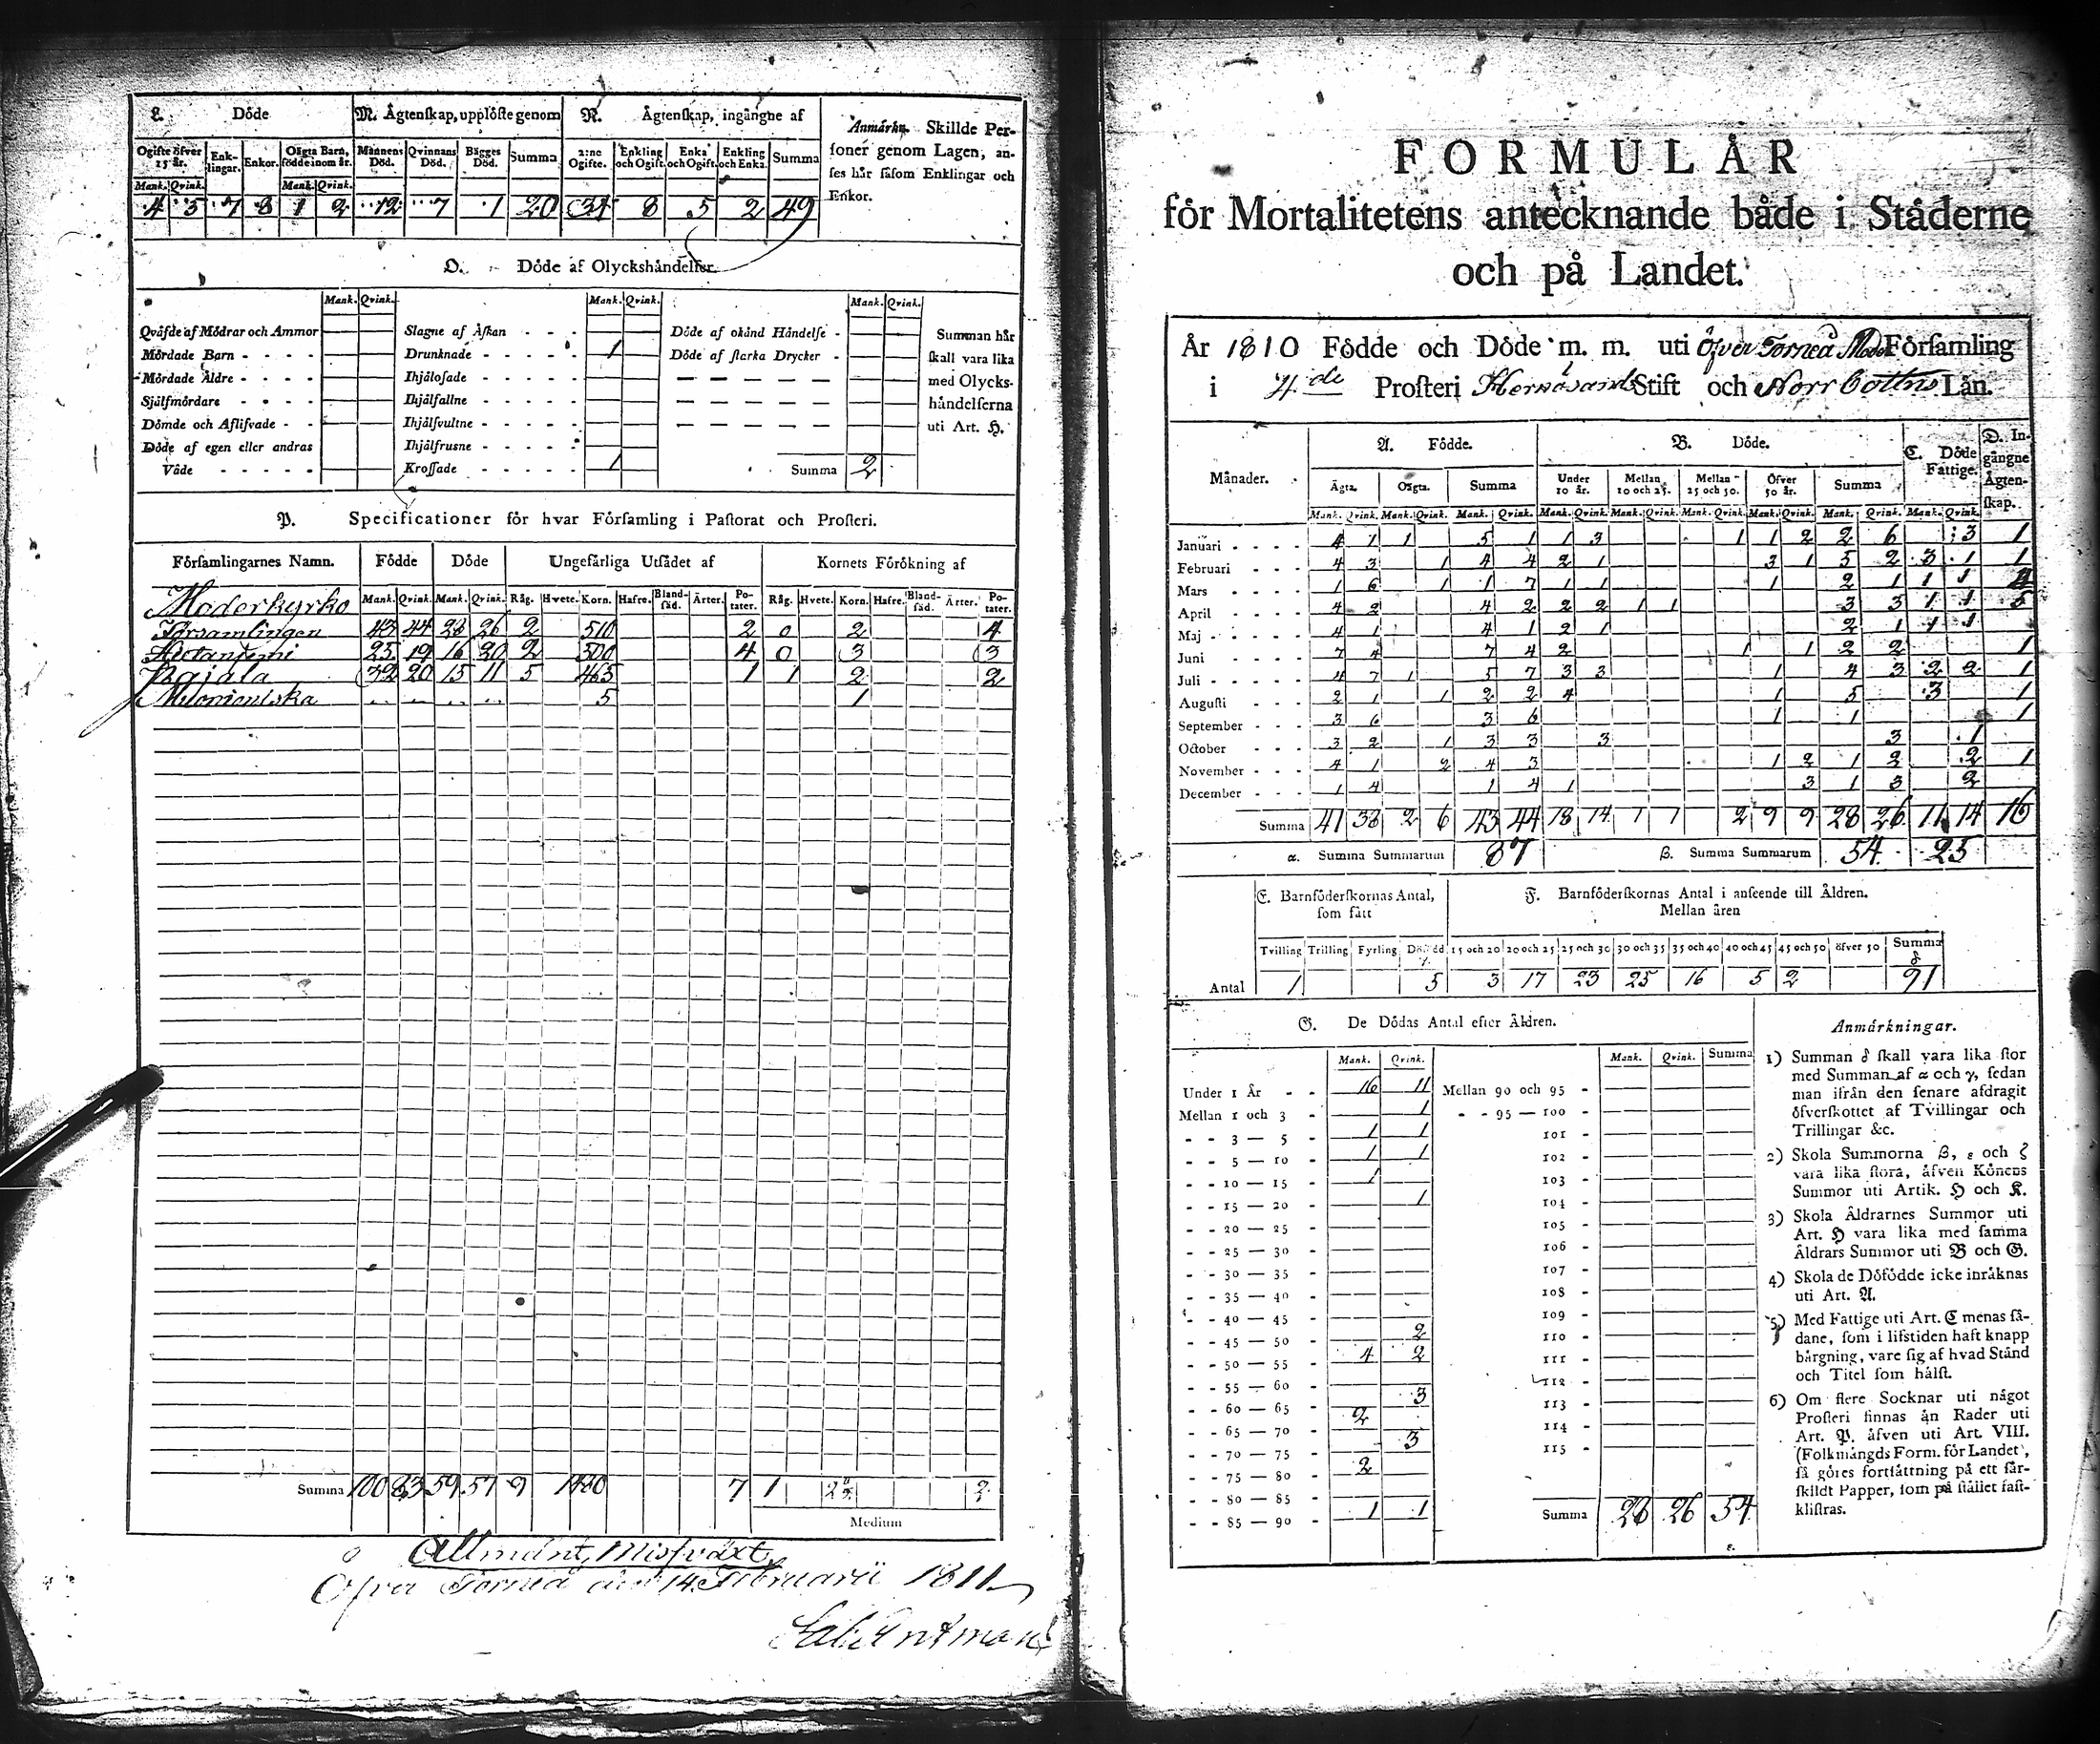 L. Döde M. Ägtenskap, upplöste genom N. Ägtenskap, ingångne af Anmärkn. Skillde Personer genom Lagen, anses här såsom Enklingar och Enkor.
Ogifte öfver 25 år. Enklingar. Enkor. Oägta Barn, födde inom år. Mannens Död. Qvinnans Död. Bägges Död. Summa 2:ne Ogifte. Enkling och Ogift. Enka och Ogift. Enkling och Enka. Summa
Mank. Qvink. Mank. Qvink.
4 5 7 8 1 2 12 7 1 20 34 8 5 2 49
O. Döde af Olyckshändelser.
Mank. Qvink. Mank. Qvink. Mank. Qvink.
Qväfde af Mödrar och Ammor Slagne af Åskan - - - Döde af okänd Händelse - Summan här
Mördade Barn - - - - Drunknade - - - - - 1 Döde af starka Drycker - skall vara lika
Mördade Äldre - - - - Ihjälosade - - - - - med Olycks-
Självmördare - - - - Ihjälfallne - - - - händelserna
Dömde och Aflifvade - - Ihjälsvultne - - - - uti Art. H.
Döde af egen eller andras Ihjälfrusne - - - -
Våde - - - - - Krossade - - - - - 1 Summa 2
P. Specificationer för hvar Församling i Pastorat och Prosteri.
Församlingarnes Namn. Födde Döde Ungefärliga Utsädet af Kornets Förökning af
Mank. Qvink. Mank. Qvink. Råg. Hvete. Korn. Hafre. Blandsäd. Ärter. Potater. Råg. Hvete. Korn. Hafre. Blandsäd. Ärter. Potater.
Moderkyrko
Församlingen 43 44 28 26 2 510 2 0 2 4
Hietaniemi 25 19 16 20 2 500 4 0 3 3
Pajala 32 20 15 11 5 465 1 1 2 2
5 1
Summa 100 83 59 57 9 1480 7 1
Medium
Allmänt Missväxt
Öfver Torneå den 14 Februarii 1811
FORMULÅR
för Mortalitetens antecknande både i Städerne
och på Landet.
År 1810 Födde och Döde m. m. uti Öfver Torneå Moder Församling
i 4de Prosteri Hernösands Stift och Norrbottns Län.
Månader. A. Födde. B. Döde. C. Döde Fattige. D. Ingångne Ägtenskap.
Ägta. Oägta. Summa Under 10 år. Mellan 10 och 25. Mellan 25 och 50. Öfver 50 år. Summa
Mank. Qvink. Mank. Qvink. Mank. Qvink. Mank. Qvink. Mank. Qvink. Mank. Qvink. Mank. Qvink. Mank. Qvink. Mank. Qvink.
Januari - - - - 4 1 1 5 1 1 3 1 1 2 2 6 3 1
Februari - - - 4 3 1 4 4 2 1 3 1 5 2 3 1 1
Mars - - - - 1 6 1 1 7 1 1 1 2 1 1 1 4
April - - - - 4 2 4 2 2 2 1 1 3 3 1 1 5
Maj - - - - 4 1 4 1 2 1 2 1 1 1
Juni - - - - 7 4 7 4 2 1 1 2 2 1
Juli - - - - 4 7 1 5 7 3 3 1 4 3 2 2 1
Augusti - - - 2 1 1 2 2 4 1 5 3 1
September - - - 3 6 3 6 1 1 1
October - - - 3 2 1 3 3 3 3 1
November - - - 4 1 2 4 3 1 2 1 2 2 1
December - - - 1 4 1 4 1 3 1 3 2
Summa 41 38 2 6 43 44 18 14 1 1 2 9 9 28 26 11 14 16
α. Summa Summarum 87 β. Summa Summarum 54 25
E. Barnföderskornas Antal, som fått F. Barnföderskornas Antal i anseende till Åldren.
Mellan åren
Tvilling Trilling Fyrling Dödfödd γ. 15 och 20 20 och 25 25 och 30 30 och 35 35 och 40 40 och 45 45 och 50 öfver 50 Summa δ
Antal 1 5 3 17 23 25 16 5 2 91
G. De Dödas Antal efter Åldren.
Mank. Qvink. Mank. Qvink. Summa
Under 1 År - - 16 11 Mellan 90 och 95 -
Mellan 1 och 3 - 1 - - 95 — 100 -
- - 3 — 5 - 1 1 101 -
- - 5 — 10 - 1 1 102 -
- - 10 — 15 - 1 103 -
- - 15 — 20 - 1 104 -
- - 20 — 25 - 105 -
- - 25 — 30 - 106 -
- - 30 — 35 - 107 -
- - 35 — 40 - 108 -
- - 40 — 45 - 109 -
- - 45 — 50 - 2 110 -
- - 50 — 55 - 4 2 111 -
- - 55 — 60 - 112 -
- - 60 — 65 - 3 113 -
- - 65 — 70 - 2 114 -
- - 70 — 75 - 3 115 -
- - 75 — 80 - 2
- - 80 — 85 -
- - 85 — 90 - 1 1 Summa 28 26 54
ε.
Anmärkningar.
1) Summan δ skall vara lika stor
med Summan af α och γ, sedan
man ifrån den senare afdragit
öfverskottet af Tvillingar och
Trillingar &c.
2) Skola Summorna β, ε och ζ
vara lika stora, äfven Könens
Summor uti Artik. H och K.
3) Skola Åldrarnes Summor uti
Art. H vara lika med samma
Åldrars Summor uti B och G.
4) Skola de Döfödde icke inräknas
uti Art. A.
5) Med Fattige uti Art. C menas så-
dane, som i lifstiden haft knapp
bärgning, vare sig af hvad Stånd
och Titel som hälst.
6) Om flere Socknar uti något
Prosteri finnas än Rader uti
Art. P. äfven uti Art. VIII.
(Folkmängds Form. för Landet),
så göres fortsättning på ett sär-
skildt Papper, som på stället fast-
klistras.